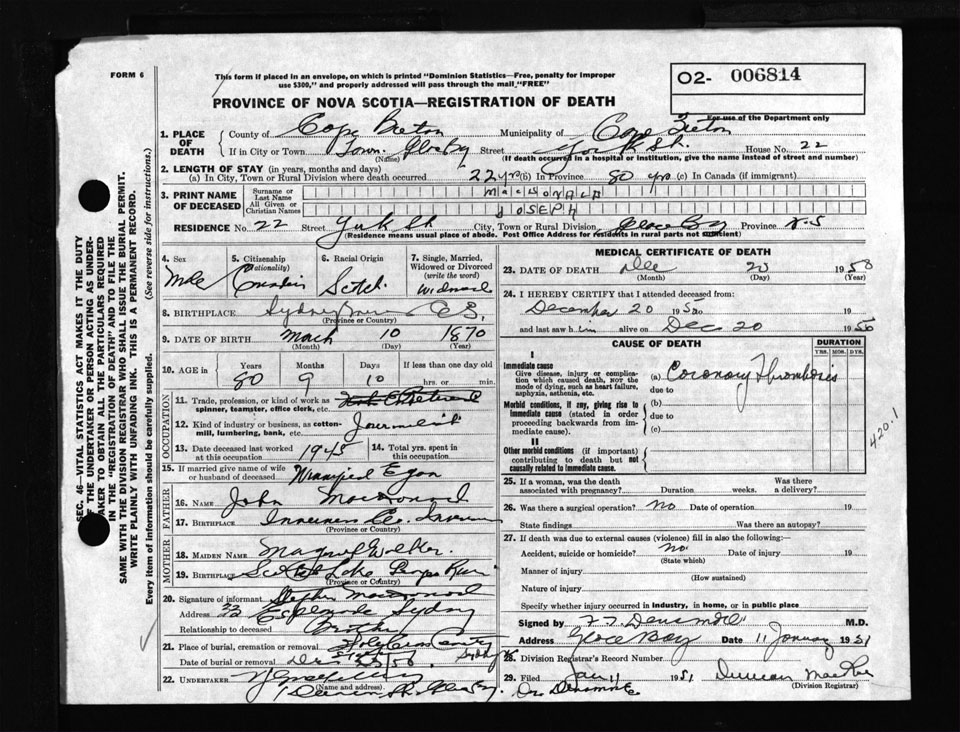 FORM 6
This form if placed in an envelope, on which is printed "Dominion Statistics—Free, penalty for improper
use $300," and properly addressed will pass through the mail "FREE"
O2- 006814
For use of the Department only
PROVINCE OF NOVA SCOTIA—REGISTRATION OF DEATH
1. PLACE OF DEATH
County of Cape Breton Municipality of Cape Breton
If in City or Town Town Street York St. House No. 22
(Name) (If death occurred in a hospital or institution, give the name instead of street and number)
2. LENGTH OF STAY (in years, months and days)
(a) In City, Town or Rural Division where death occurred 22 yrs (b) In Province 80 yrs (c) In Canada (if immigrant)
3. PRINT NAME OF DECEASED
Surname or Last Name MacDONALD
All Given or Christian Names JOSEPH
RESIDENCE No. 22 Street York St City, Town or Rural Division Glace Bay Province N.S
(Residence means usual place of abode. Post Office Address for residents in rural parts not sufficient)
4. Sex 5. Citizenship (Nationality) 6. Racial Origin 7. Single, Married, Widowed or Divorced (write the word)
Male Canadian Scotch Widowed
8. BIRTHPLACE Sydney Mines C.B.
(Province or Country)
9. DATE OF BIRTH March 10 1870
(Month) (Day) (Year)
10. AGE in Years Months Days If less than one day old
80 9 10 hrs. or min.
OCCUPATION
11. Trade, profession, or kind of work as spinner, teamster, office clerk, etc. Retired
12. Kind of industry or business, as cotton-mill, lumbering, bank, etc. Journalist
13. Date deceased last worked at this occupation 1945 14. Total yrs. spent in this occupation
15. If married give name of wife or husband of deceased Winnifred Egan
FATHER
16. NAME John MacDonald
17. BIRTHPLACE Inverness Co. Inverness
(Province or Country)
MOTHER
18. MAIDEN NAME Margaret
19. BIRTHPLACE Lake
(Province or Country)
20. Signature of informant Stephen MacDonald
Address Esplanade Sydney
Relationship to deceased Brother
21. Place of burial, cremation or removal Holy Cross Cemetery
Date of burial or removal Dec
22. UNDERTAKER
(Name and address)
MEDICAL CERTIFICATE OF DEATH
23. DATE OF DEATH Dec 20 1950
(Month) (Day) (Year)
24. I HEREBY CERTIFY that I attended deceased from:
December 20 1950 to
and last saw him alive on Dec 20 1950
CAUSE OF DEATH
DURATION
YRS. MOS. DYS.
I
Immediate cause
Give disease, injury or complication which caused death, NOT the mode of dying, such as heart failure, asphyxia, asthenia, etc.
(a) Coronary Thrombosis
due to
Morbid conditions, if any, giving rise to immediate cause (stated in order proceeding backwards from immediate cause).
(b)
due to
(c)
II
Other morbid conditions (if important) contributing to death but not causally related to immediate cause.
420.1
25. If a woman, was the death associated with pregnancy? Duration weeks. Was there a delivery?
26. Was there a surgical operation? No Date of operation 19
State findings Was there an autopsy?
27. If death was due to external causes (violence) fill in also the following:
Accident, suicide or homicide? No. Date of injury 19
(State which)
Manner of injury
(How sustained)
Nature of injury
Specify whether injury occurred in industry, in home, or in public place
Signed by M.D.
Address Glace Bay Date 11 January 1951
28. Division Registrar's Record Number
29. Filed Jan 11 1951 Duncan
(Division Registrar)
SEC. 46—VITAL STATISTICS ACT MAKES IT THE DUTY
OF THE UNDERTAKER OR PERSON ACTING AS UNDER-
TAKER TO OBTAIN ALL THE PARTICULARS REQUIRED
IN THE "REGISTRATION OF DEATH" AND TO FILE THE
SAME WITH THE DIVISION REGISTRAR WHO SHALL ISSUE THE BURIAL PERMIT.
WRITE PLAINLY WITH UNFADING INK. THIS IS A PERMANENT RECORD.
Every item of information should be carefully supplied. (See reverse side for instructions.)